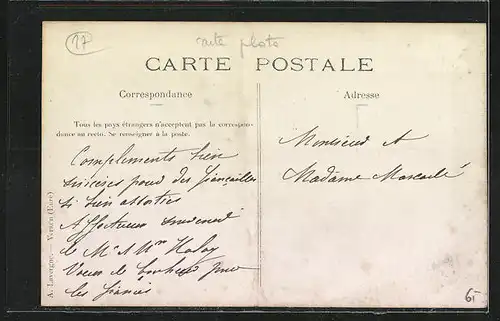 17
carte photo
CARTE POSTALE
Correspondance
Adresse
Tous les pays étrangers n'acceptent pas la correspon-
dance au recto. Se renseigner à la poste.
A. Lavergne. — Vernon (Eure)
Compliments bien
sincères pour des fiançailles
si bien assorties
Affectueux
de Mr & Mme
Vœux de bonheur pour
les fiancés
Monsieur &
Madame
65